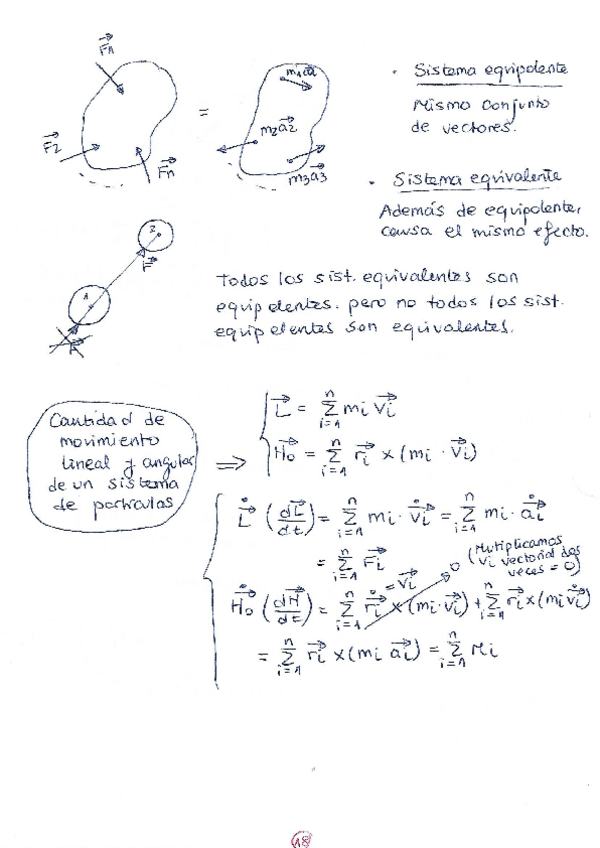 F₁
F₂
Fn
=
m₁a
m₂a₂
m₃a₃
· Sistema equipolente
Mismo conjunto
de vectores.
· Sistema equivalente
Además de equipolente,
causa el mismo efecto.
F
A
Todos los sist. equivalentes son
equipolentes. pero no todos los sist.
equipolentes son equivalentes.
Cantidad de
movimiento
lineal y angular
de un sistema
de partículas
⇒
L⃗ = Σ(i=1, n) mi v⃗i
H⃗o = Σ(i=1, n) r⃗i × (mi · v⃗i)
L̇⃗ (dL⃗/dt) = Σ(i=1, n) mi · v̇⃗i = Σ(i=1, n) mi · a⃗i
= Σ(i=1, n) F⃗i
(Mutiplicamos
vi vectorial dos
veces = 0)
0
= v⃗i
Ḣ⃗o (dH⃗/dt) = Σ(i=1, n) ṙ⃗i × (mi · v⃗i) + Σ(i=1, n) r⃗i × (mi v̇⃗i)
= Σ(i=1, n) r⃗i × (mi a⃗i) = Σ(i=1, n) Mi
18